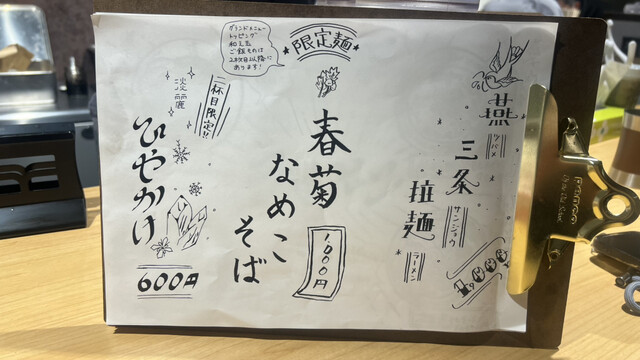 限定麺
グランドメニュー
トッピング
和え玉
ご飯ものは
2枚目以降に
あります!
燕
ツバメ
三条
サンジョウ
拉麺
ラーメン
春菊
なめこ
そば
1,000円
二杯目限定!!
淡麗
ひやかけ
600円